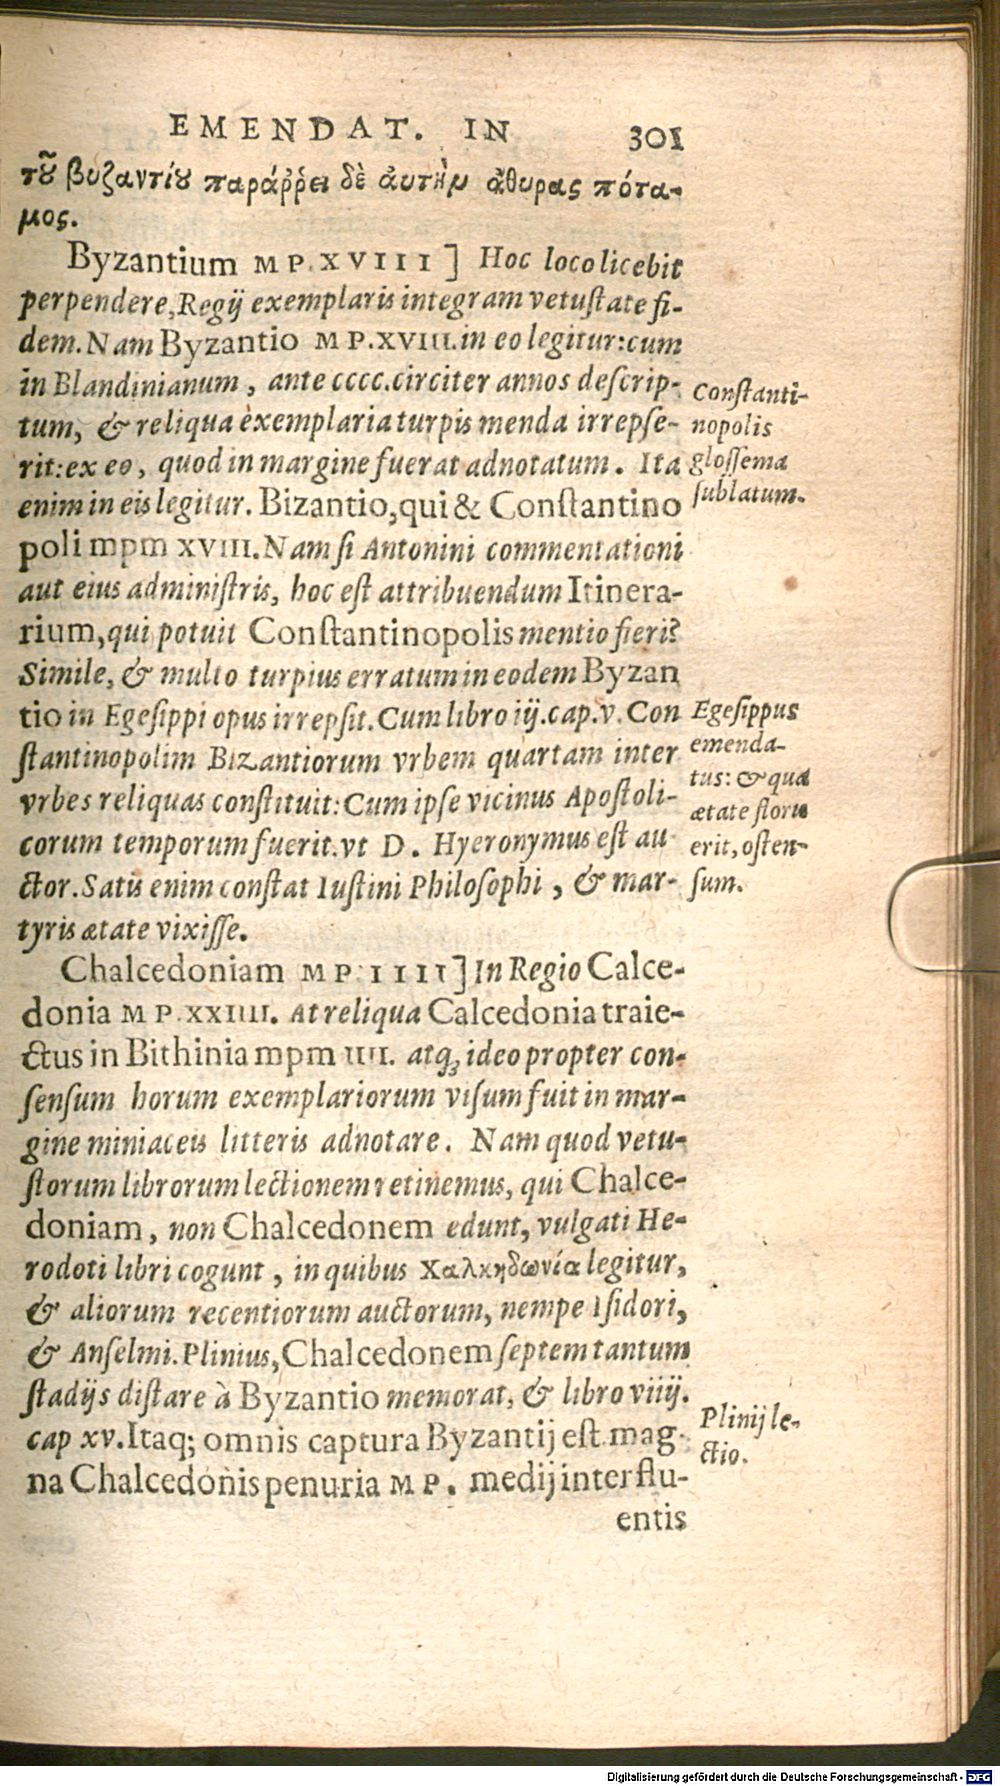 EMENDAT. IN 301
τοῦ βυζαντίου παράῤῥει δὲ ἀυτὴν ἄθυρας πότα-
μος.
Byzantium MP. XVIII] Hoc loco licebit
perpendere, Regij exemplaris integram vetustate fi-
dem. Nam Byzantio MP. XVIII. in eo legitur: cum
in Blandinianum, ante cccc. circiter annos descrip-
tum, & reliqua exemplaria turpis menda irrepse-
rit: ex eo, quod in margine fuerat adnotatum. Ita
enim in eis legitur. Bizantio, qui & Constantino
poli mpm XVIII. Nam si Antonini commentationi
aut eius administris, hoc est attribuendum Itinera-
rium, qui potuit Constantinopolis mentio fieri?
Simile, & multo turpius erratum in eodem Byzan
tio in Egesippi opus irrepsit. Cum libro iij. cap. v. Con
stantinopolim Bizantiorum vrbem quartam inter
vrbes reliquas constituit: Cum ipse vicinus Apostoli-
corum temporum fuerit. vt D. Hyeronymus est au
ctor. Satis enim constat Iustini Philosophi, & mar-
tyris ætate vixisse.
Constanti-
nopolis
glossema
sublatum.
Egesippus
emenda-
tus: & qua
ætate floru
erit, osten-
sum.
Chalcedoniam MP. IIII] In Regio Calce-
donia MP. XXIIII. At reliqua Calcedonia traie-
ctus in Bithinia mpm IIII. atq; ideo propter con-
sensum horum exemplariorum visum fuit in mar-
gine miniaceis litteris adnotare. Nam quod vetu-
storum librorum lectionem retinemus, qui Chalce-
doniam, non Chalcedonem edunt, vulgati He-
rodoti libri cogunt, in quibus Χαλκηδωνία legitur,
& aliorum recentiorum auctorum, nempe Isidori,
& Anselmi. Plinius, Chalcedonem septem tantum
stadijs distare à Byzantio memorat, & libro viiij.
cap xv. Itaq; omnis captura Byzantij est mag
na Chalcedonis penuria MP. medij interflu-
entis
Plinij le-
ctio.
Digitalisierung gefördert durch die Deutsche Forschungsgemeinschaft - DFG